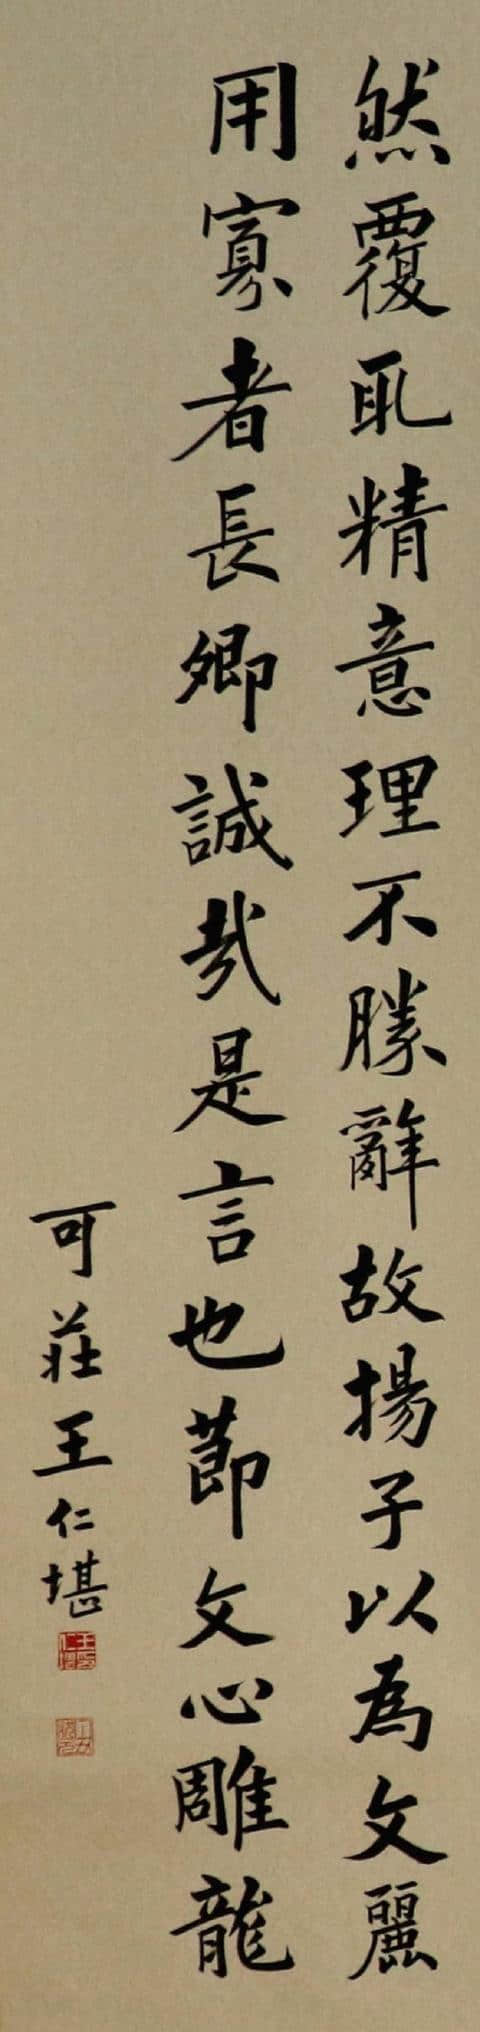 然覆取精意理不勝辭故揚子以為文麗
用寡者長卿誠哉是言也節文心雕龍
可莊王仁堪